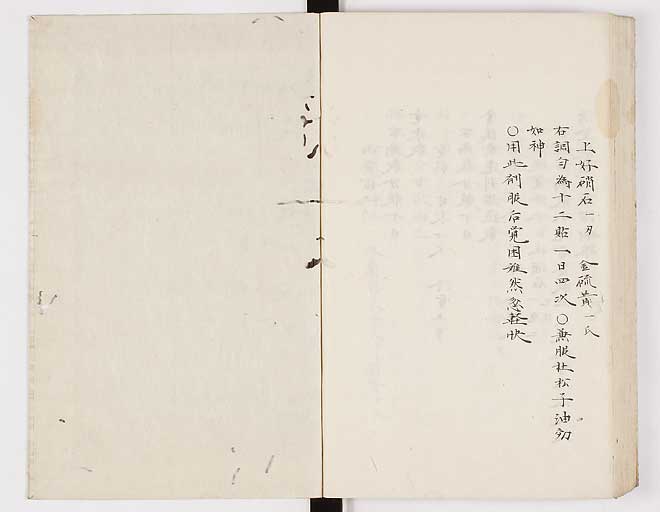 上好硝石一匁 金硫黄一氏
右調匀為十二貼一日四次〇兼服杜松子油効
如神
〇用此剤服后覚困雖然忽軽快